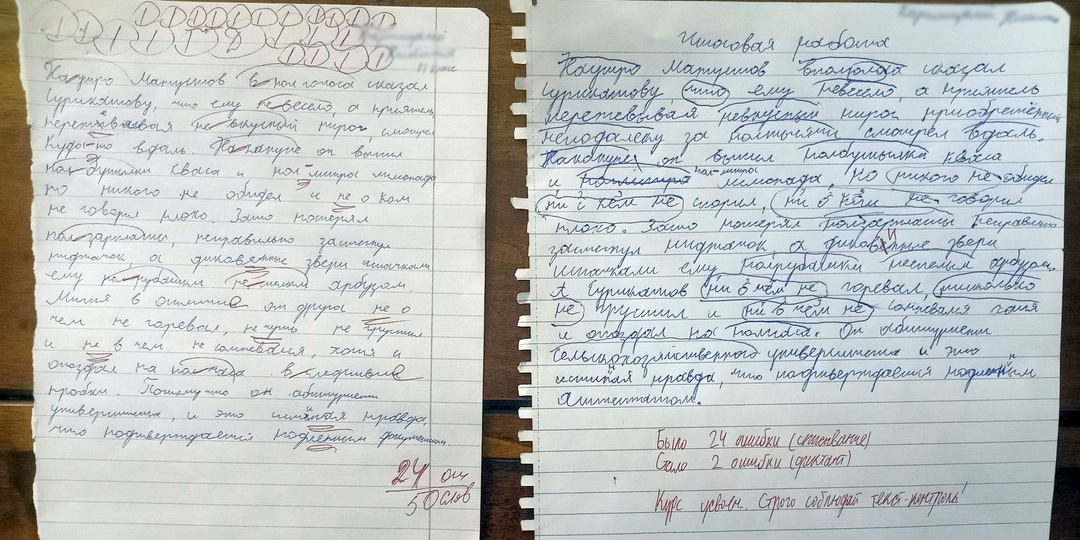 Матюшов в пол голоса сказал
Сурикатову, что ему не весело а приятель
не вкусный пирог, смотрел
Куда-то вдаль. Накануне он выпил
пол бутылки кваса и пол-литра лимонада
но никого не обидел и не о ком
не говорил плохо. Зато потерял
пол зарплаты, неправильно застегнул
пиджачок, а диковенные звери испачкали
ему пол рубашки не спелым арбузом.
Митя в отличие от друга не о
чем не горевал, не чуть не грустил
и не в чем не сомневался, хотя и
опоздал на пол часа в следствие
пробки. Потому что он абитуриент
университета, и это истиная правда,
что подтверждается подленным документом.
24 ош
50 слов
Итоговая работа
Матюшов вполголоса сказал
Сурикатову, что ему невесело, а приятель
пережёвывая невкусный пирог приобретённый
неподалёку за полтысячи смотрел вдаль.
Накануне он выпил полбутылки кваса
и пол-литра лимонада, но никого не обидел
ни с кем не спорил, ни о ком не говорил
плохо. Зато потерял ползарплаты неправильно
застегнул пиджачок, а диковинные звери
испачкали ему полрубашки неспелым арбузом.
А Сурикатов ни о чём не горевал, нисколько
не грустил и ни в чём не сомневался хотя
и опоздал на полчаса. Он абитуриент
сельскохозяйственного университета и это
истиная правда, что подтверждается
аттестатом.
Было 24 ошибки (списывание)
Стало 2 ошибки (диктант)
Курс усвоен. Строго соблюдай текст-контроль!